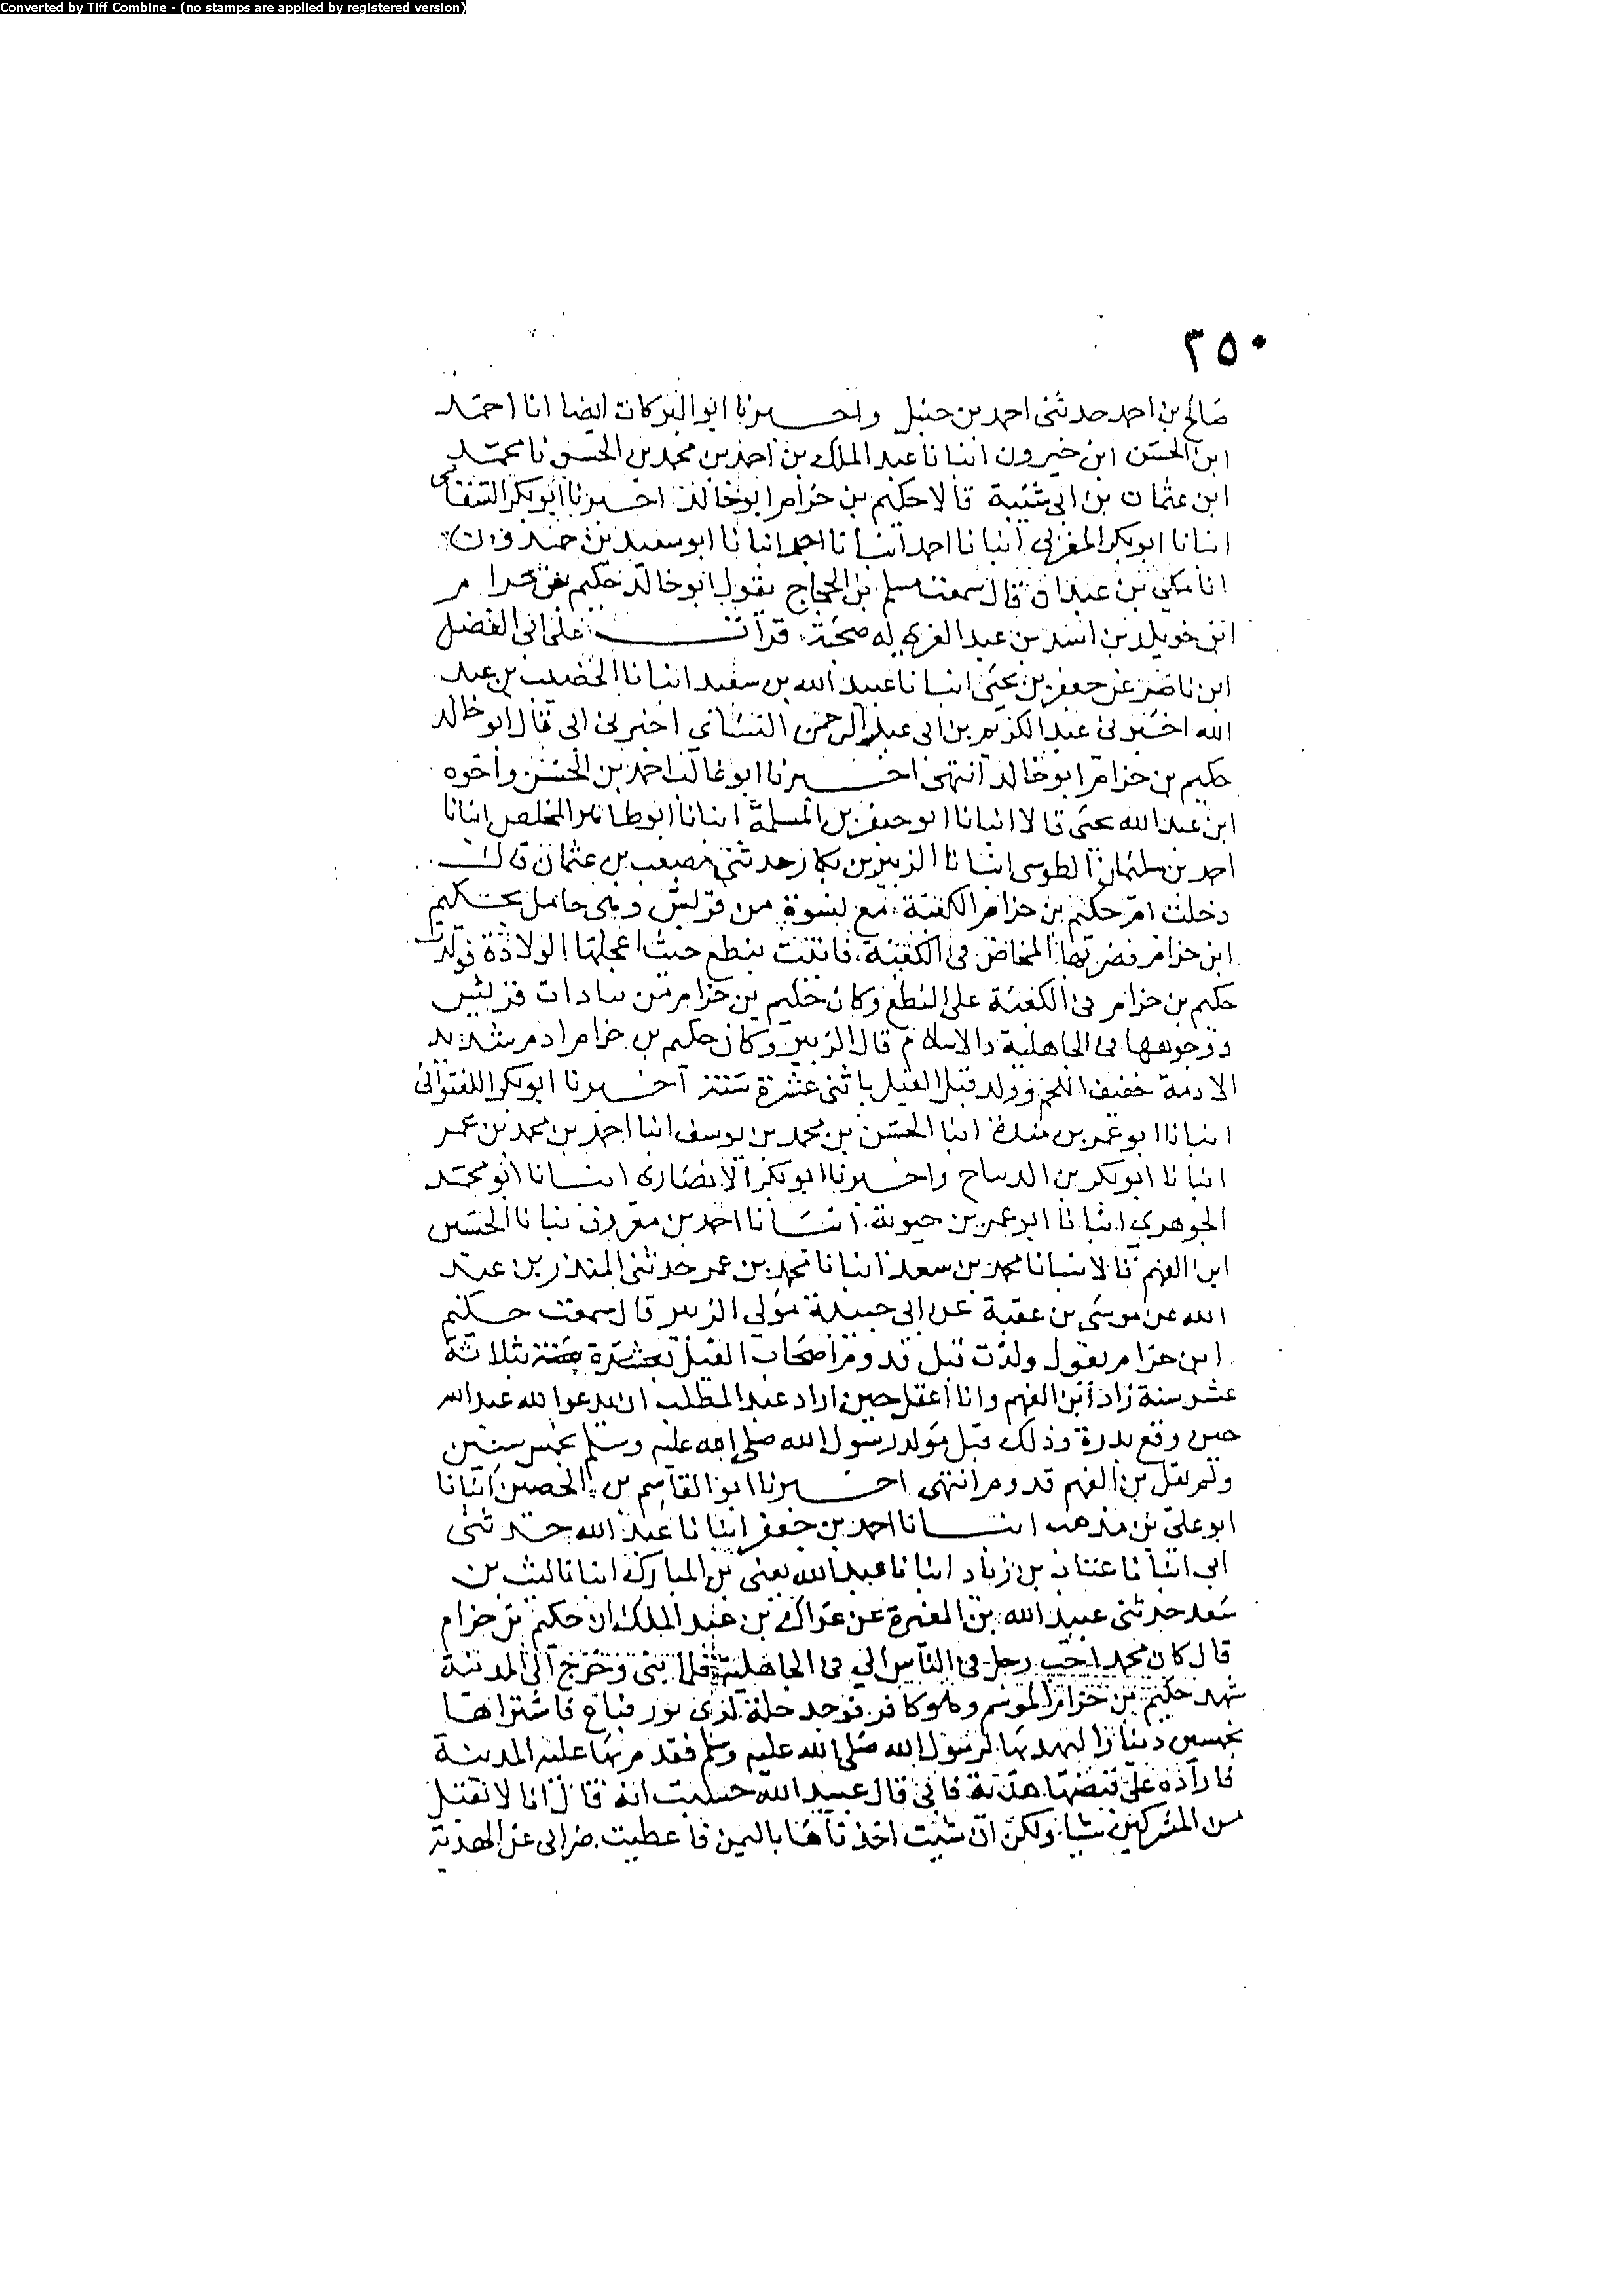 Converted by Tiff Combine - (no stamps are applied by registered version)
٣٥٠
صالح بن احمد حدثنى احمد بن حنبل واخبرنا ابو البركات ايضا انا احمد
ابن الحسن ابن خيرون انبانا عبد الملك بن احمد بن محمد بن الحسن نا محمد
ابن عثمان بن ابى شيبة قالا حكيم بن حزام ابو خالد اخبرنا ابو بكر الشقانى
انبانا ابو بكر المغربى انبانا احمد انبانا ابو سعيد بن حمدون
انا مكى بن عبدان قال سمعت مسلم بن الحجاج يقول ابو خالد حكيم بن حزام
ابن خويلد بن اسد بن عبد العزى له صحبة قرأت على ابى الفضل
ابن ناصر عن جعفر بن يحيى انبانا عبيد الله بن سعيد انبانا الخصيب بن عبد
الله اخبرنى عبد الكريم بن ابى عبد الرحمن النسائي اخبرنى ابى قال ابو خالد
حكيم بن حزام ابو خالد انتهى اخبرنا ابو غالب احمد بن الحسن واخوه
ابن عبد الله يحيى قالا انبانا ابو جعفر بن المسلمة انبانا ابو طاهر المخلص انبانا
احمد بن سليمان الطوسى انبانا الزبير بن بكار حدثنى مصعب بن عثمان قال
دخلت ام حكيم بن حزام الكعبة مع نسوة من قريش وهى حامل بحكيم
ابن حزام فضربها المخاض فى الكعبة فاتيت بنطع حيث اعجلتها الولادة فولدت
حكيم بن حزام فى الكعبة على النطع وكان حكيم بن حزام من سادات قريش
ووجوهها فى الجاهلية والاسلام قال الزبير وكان حكيم بن حزام ادم شديد
الادمة خفيف اللحم وولد قبل الفيل باثنى عشرة سنة اخبرنا ابو بكر اللفتوانى
انبانا ابو عمر بن مندة انبا الحسن بن محمد بن يوسف انبا احمد بن محمد بن عمر
انبانا ابو بكر بن واخبرنا ابو بكر الانصارى انبانا ابو محمد
الجوهري انبانا ابو عمر بن حيوية انبانا احمد بن معروف نبانا الحسين
ابن الفهم قالا انبانا محمد بن سعد انبانا محمد بن عمر حدثنى المنذر بن عبد
الله عن موسى بن عقبة عن ابى حبيبة مولى الزبير قال سمعت حكيم
ابن حزام يقول ولدت قبل قدوم اصحاب الفيل بثلاثة
عشر سنة زاد ابن الفهم وانا اعقل حين اراد عبد المطلب ان عبد الله
حين وقع نذره وذلك قبل مولد رسول الله صلى الله عليه وسلم بخمس سنين
ولم يقل بن الفهم قدوم انتهى اخبرنا ابو القاسم بن الحصين انبانا
ابو على بن مذهب انبانا احمد بن جعفر انبانا عبد الله حدثنى
ابى انبانا عتاب بن زياد انبانا عبد الله يعنى بن المبارك انبانا ليث بن
سعد حدثنى عبيد الله بن المغيرة عن عراك بن عبد الملك ان حكيم بن حزام
قال كان محمد احب رجل فى الناس الي فى الجاهلية فلما وخرج الى المدينة
شهد حكيم بن حزام الموسم وهو كافر فوجد حلة لذى تباع فاشتراها
بخمسين دينارا ليهديها لرسول الله صلى الله عليه وسلم فقدم بها عليه المدينة
فاراده على قبضها هدية فابى قال عبيد الله حسبت انه قال انا لا نقبل
من المشركين شيا ولكن ان شئت اخذناها بالثمن فاعطيته حين ابى عن الهدية